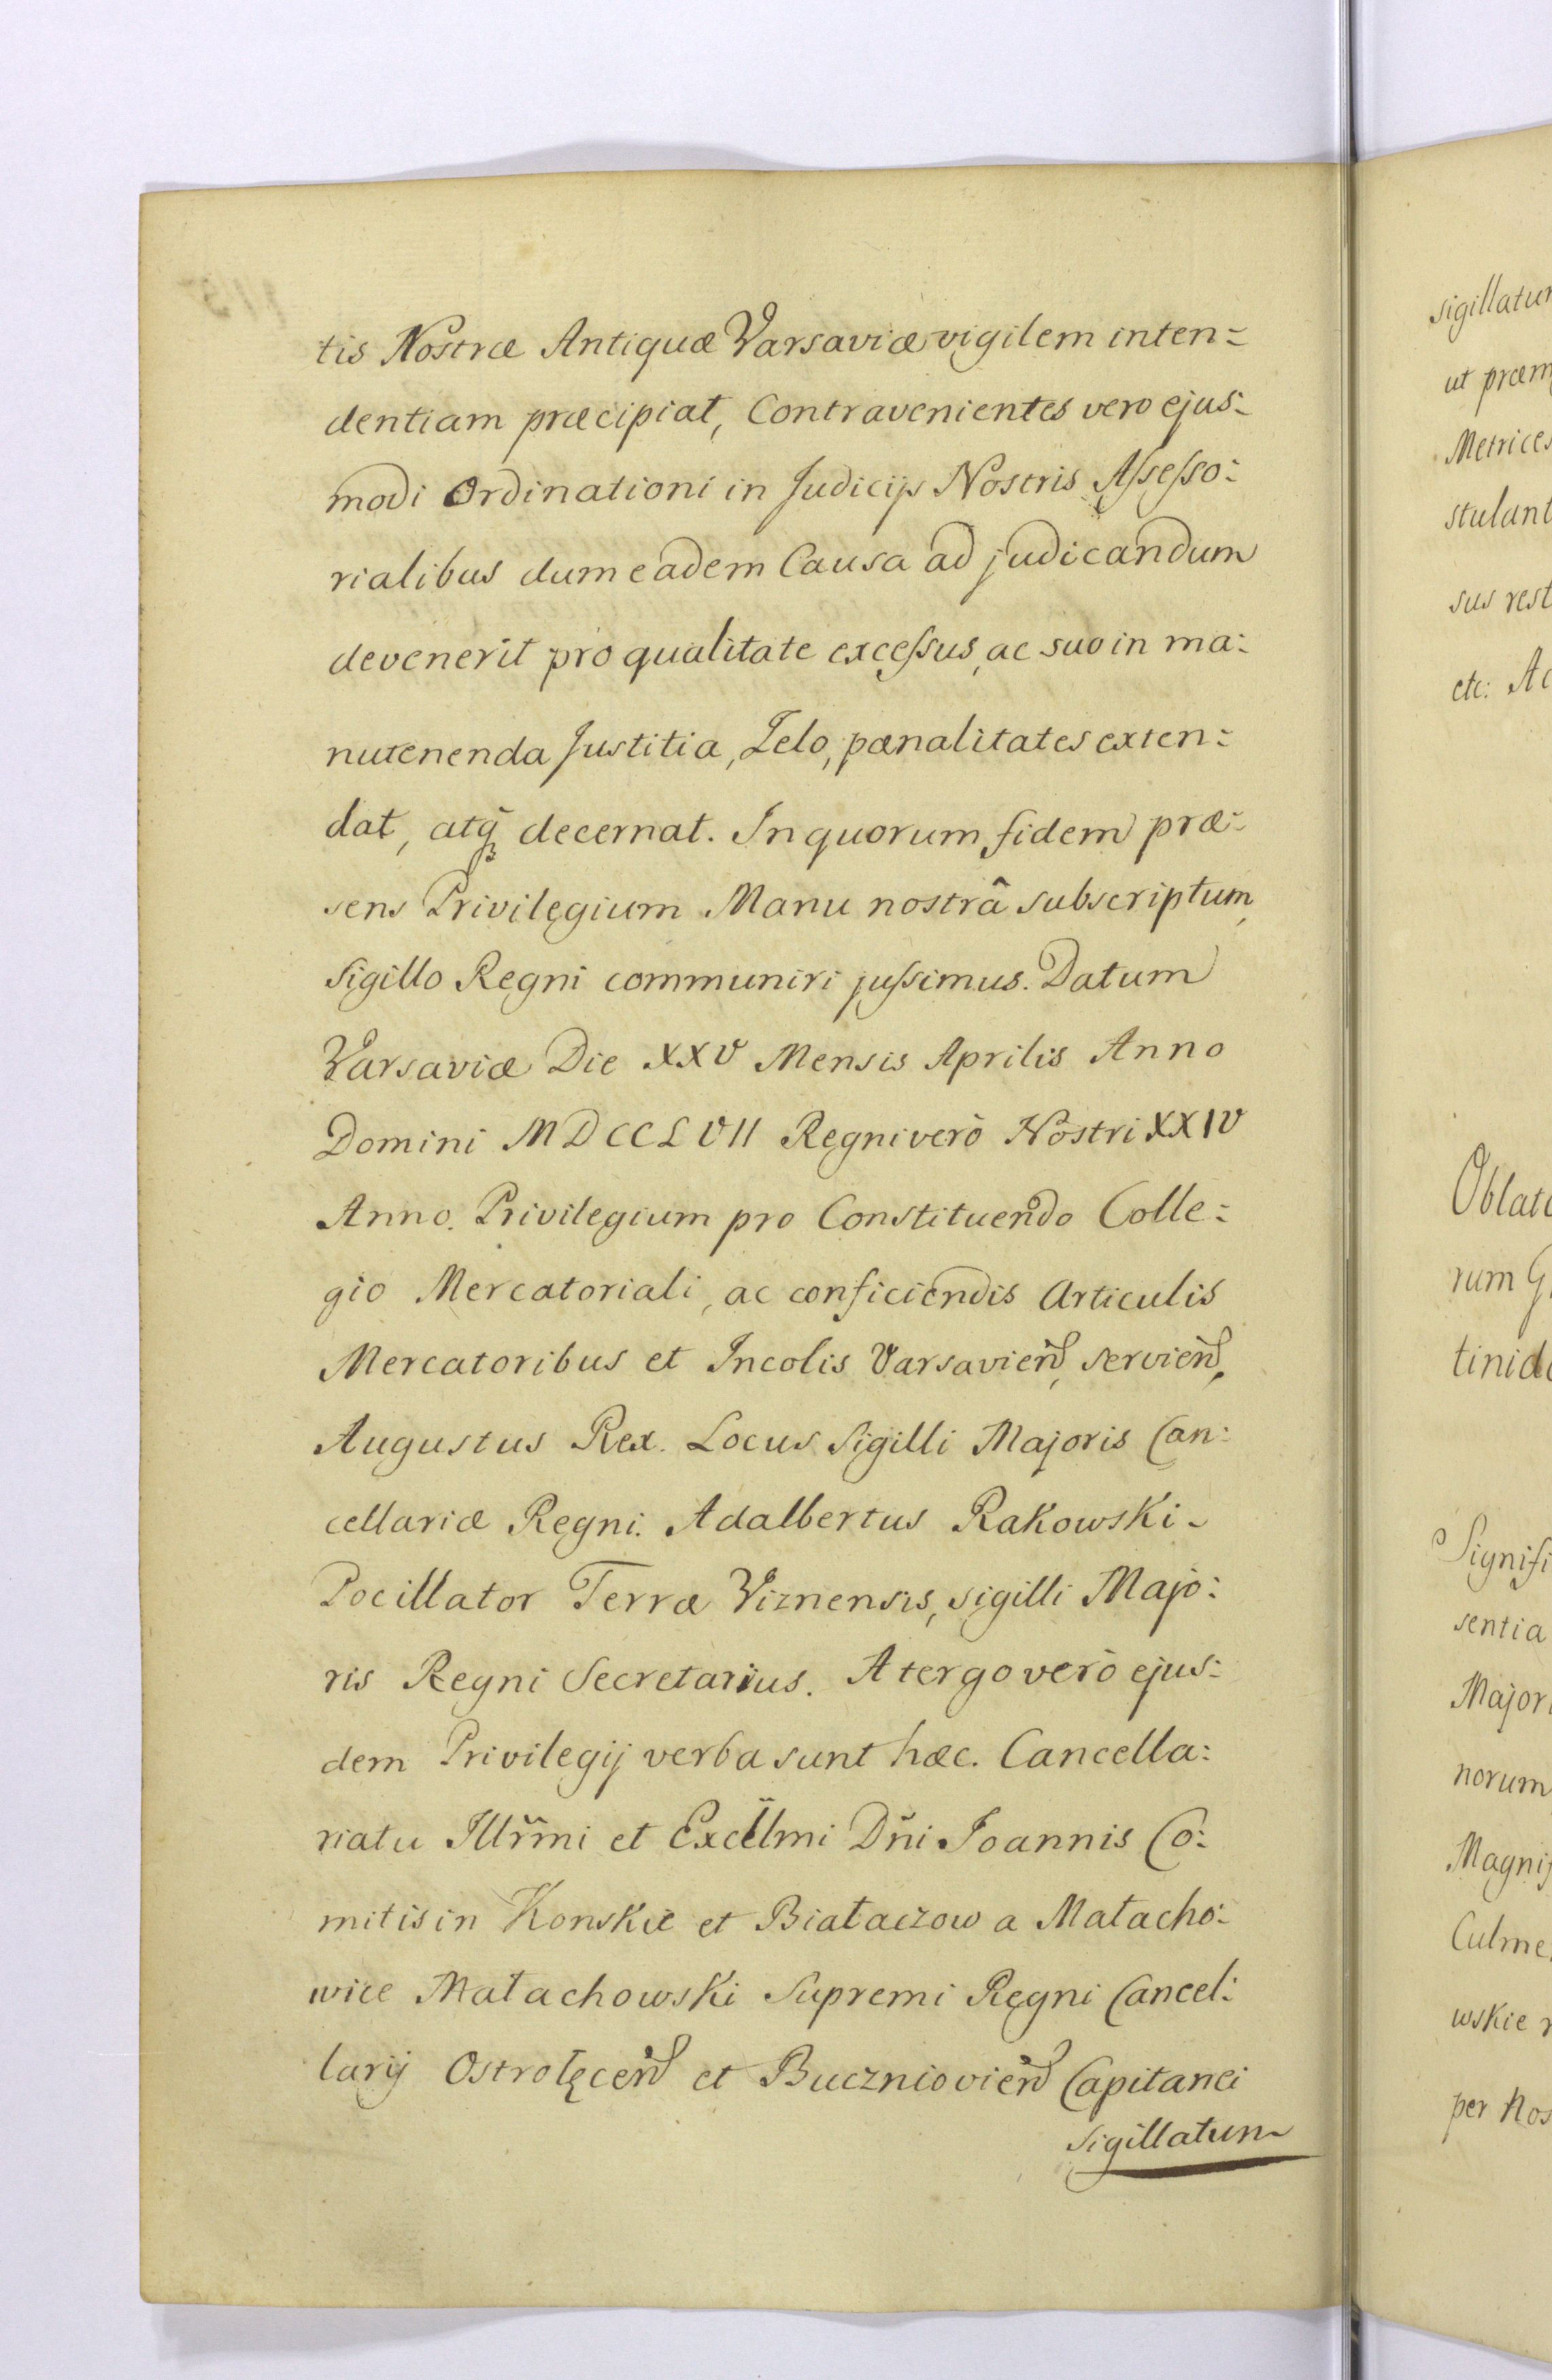 tis Nostræ Antiquæ Varsaviæ vigilem inten=
dentiam præcipiat, Contravenientes vero ejus=
modi Ordinationi in Judicijs Nostris Aſseſso:
rialibus dum eadem Causa ad judicandum
devenerit pro qualitate exceſsus, ac suo in ma:
nutenenda Justitia, Zelo, pœnalitates exten:
dat, atq̃ decernat. In quorum fidem præ:
sens Privilegium Manu nostrâ subscriptum,
Sigillo Regni communiri juſsimus. Datum
Varsaviæ Die XXV Mensis Aprilis Anno
Domini MDCCLVII Regni verò Nostri XXIV
Anno. Privilegium pro Constituendo Colle:
gio Mercatoriali, ac conficiendis Articulis
Mercatoribus et Incolis Varsavien̄, servien̄,
Augustus Rex. Locus Sigilli Majoris Can:
cellariæ Regni. Adalbertus Rakowski-
Pocillator Terræ Viznensis, sigilli Majo:
ris Regni Secretarius. A tergo verò ejus:
dem Privilegij verba sunt hæc. Cancella:
riatu Illr̃mi et Excell̃mi Dñi Joannis Co:
mitis in Konskie et Białaczow a Małacho:
wice Małachowski Supremi Regni Cancel:
larij Ostrołęcen̄ et Buczniovien̄ Capitanei
Sigillatum
sigillatu
ut præm
Metrices
stulant
sus rest
etc: Ac
Oblat
rum G
tinid
Signifi
sentia
Major
norum
Magnif
Culme
wskie
per Nos